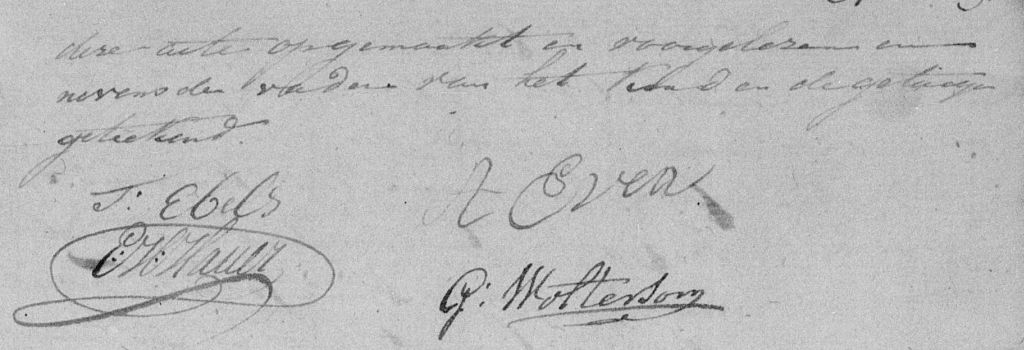 deze acte opgemaakt en voorgelezen en
nevens den vader van het kind en de getuigen
getekend.
J: Ebels
A Even
E: H: Hauer
G: Woltersom